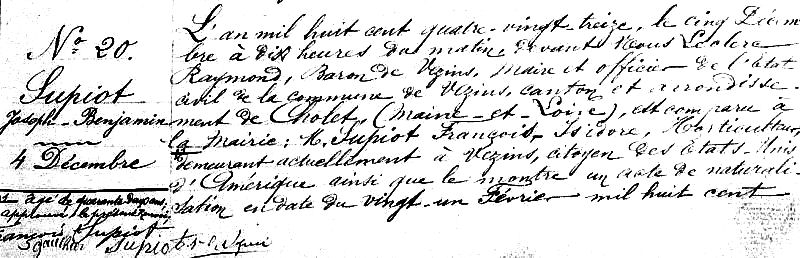 No 20.
Supiot
Joseph-Benjamin
4 Décembre
L'an mil huit cent quatre-vingt treize, le cinq Décem
bre à dix heures du matin, devant Nous Leclerc
Raymond, Baron de Vezins, Maire et officier de l'état
civil de la commune de Vezins, canton et arrondisse-
ment de Cholet, (Maine-et-Loire), est comparu à
la Mairie: M. Supiot François, Isidore, Horticulteur,
demeurant actuellement à Vezins, citoyen des Etats-Unis
d'Amérique ainsi que le montre un acte de naturali-
sation en date du vingt-un Février mil huit cent
âgé de quarante
approuvé
François Supiot
Supiot